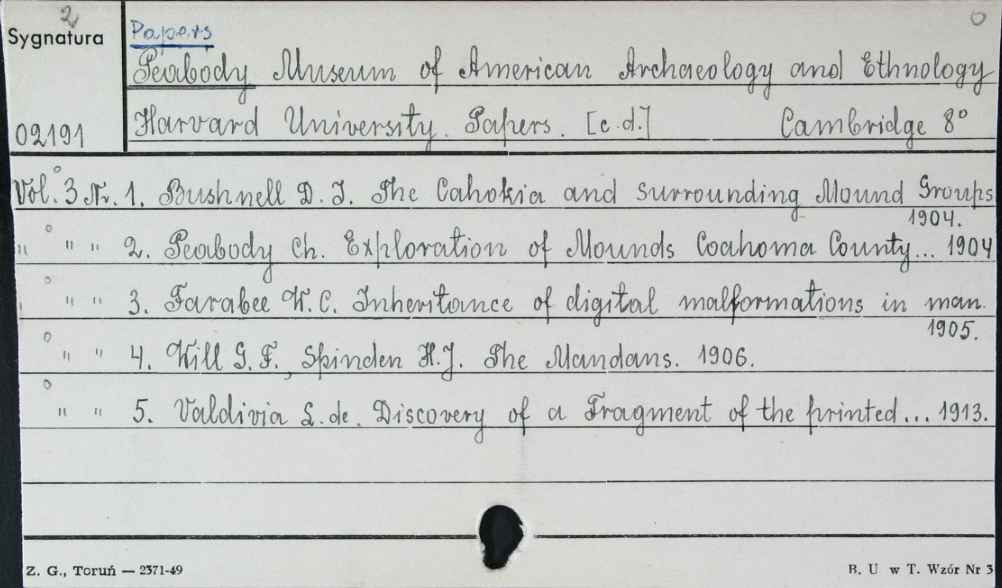 2
Sygnatura
Papers
Peabody Museum of American Archaeology and Ethnology
02191
Harvard University. Papers. [c.d.] Cambridge 8°
Vol. 3 Nr. 1. Bushnell D. I. The Cahokia and surrounding Mound Groups
1904.
" " " 2. Peabody Ch. Exploration of Mounds Coahoma County... 1904
" " 3. Farabee W. C. Inheritance of digital malformations in man.
1905.
" " 4. Will G. F., Spinden H. J. The Mandans. 1906.
" " 5. Valdivia L. de. Discovery of a Fragment of the printed... 1913.
Z. G., Toruń — 2371-49
B. U w T. Wzór Nr 3